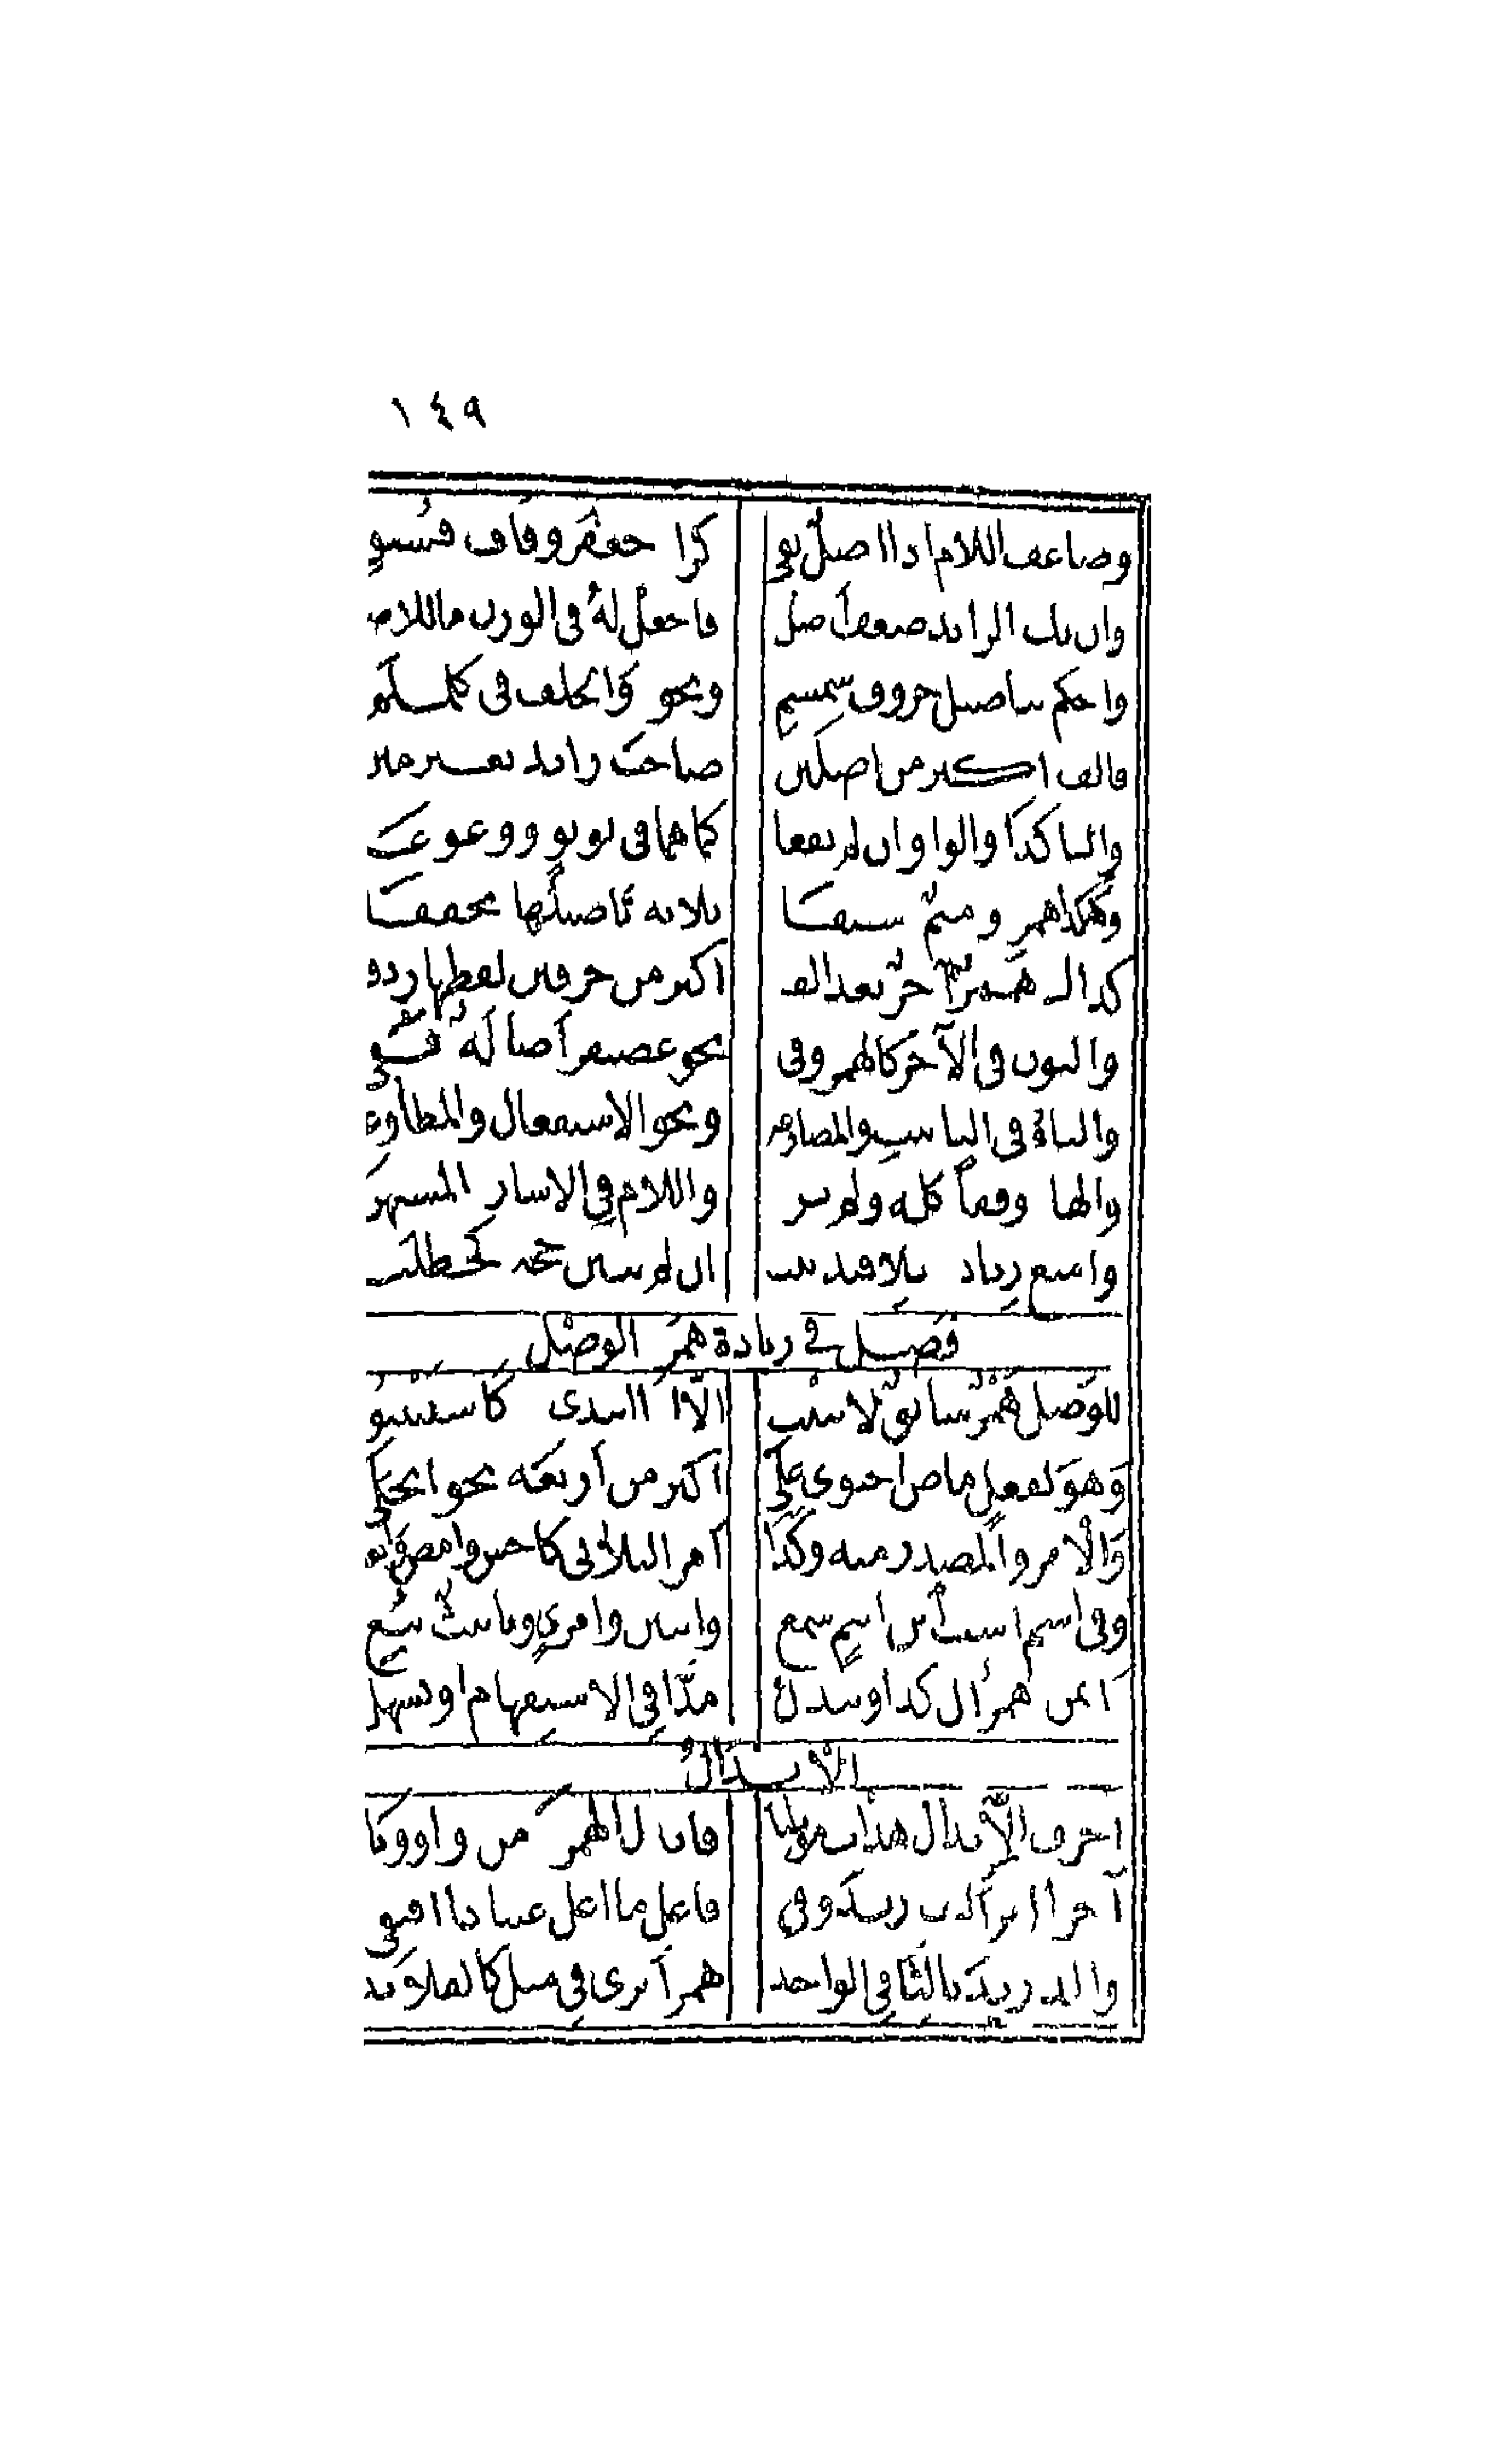 ١٤٩
وضاعف اللام اذا اصل بقي كرا جعفر وقاف فستق
وان يك الزائد ضعف اصل فاجعل له في الوزن ما للاصل
واحكم بتاصيل حروف سمسم ونحوه والخلف في كلملم
فالف اكثر من اصلين صاحب زائد بغير مين
واليا كذا والواو ان لم يقعا كما هما في يؤيؤ ووعوعا
وهكذا همز وميم سبقا ثلاثة تاصيلها تحققا
كذاك همز آخر بعد الف اكثر من حرفين لفظها ردف
والنون في الآخر كالهمز وفي نحو غضنفر اصالة كفي
والتاء في التانيث والمضارعه ونحو الاستفعال والمطاوعه
والها وقفا كلمه ولم تره واللام في الاشارة المشتهره
وامنع زيادة بلا قيد ثبت ان لم تبين حجة كحظلت
فصل في زيادة همزة الوصل
للوصل همز سابق لا يثبت الا اذا ابتدي به كاستثبتوا
وهو لفعل ماض احتوى على اكثر من اربعة نحو انجلى
والامر والمصدر منه وكذا امر الثلاثي كاخش وامض وانفذا
وفي اسم است ابن ابنم سمع واثنين وامرئ وتانيث تبع
ايمن همز ال كذا ويبدل مدا في الاستفهام او يسهل
الابدال
احرف الابدال هدأت موطيا فابدل الهمزة من واو ويا
آخرا اثر الف زيد وفي فاعل ما اعل عينا ذا اقتفي
والمد زيد ثالثا في الواحد همزا يرى في مثل كالقلائد